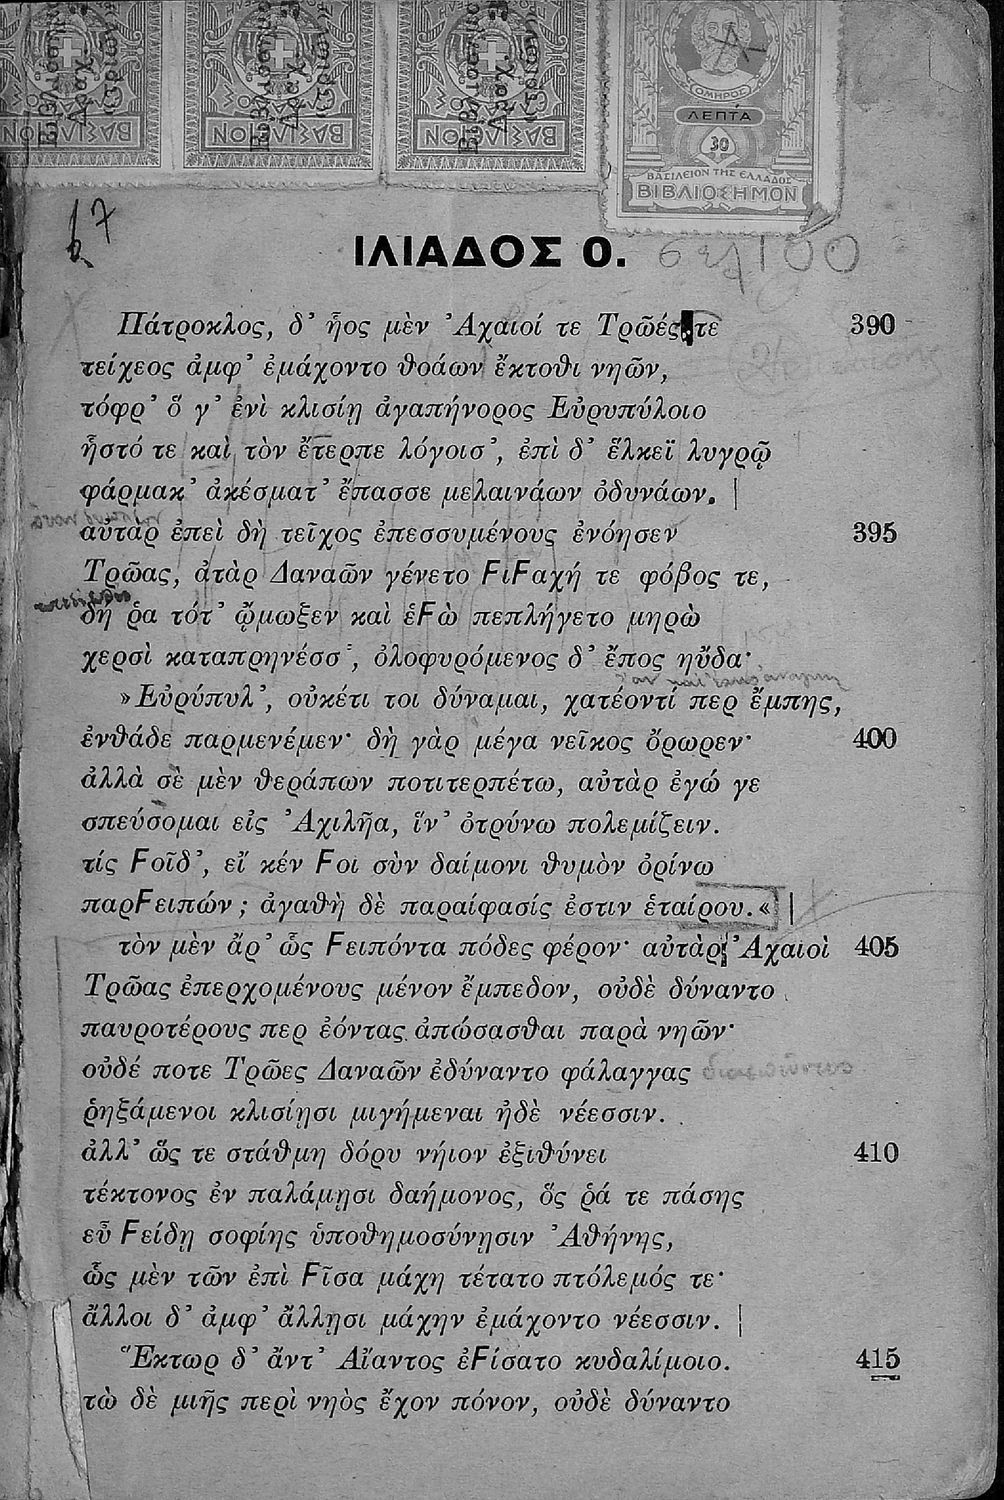 ΒΑΣΙΛΕΙΟΝ
ΒΑΣΙΛΕΙΟΝ
ΒΑΣΙΛΕΙΟΝ
ΟΜΗΡΟΣ
ΛΕΠΤΑ
30
ΒΑΣΙΛΕΙΟΝ ΤΗΣ ΕΛΛΑΔΟΣ
ΒΙΒΛΙΟΣΗΜΟΝ
67
ΙΛΙΑΔΟΣ Ο. σελ 100
Πάτροκλος, δ’ ἧος μὲν Ἀχαιοί τε Τρῶές τε 390
τείχεος ἀμφ’ ἐμάχοντο θοάων ἔκτοθι νηῶν,
τόφρ’ ὅ γ’ ἐνὶ κλισίῃ ἀγαπήνορος Εὐρυπύλοιο
ἧστό τε καὶ τὸν ἔτερπε λόγοισ’, ἐπὶ δ’ ἕλκεϊ λυγρῷ
φάρμακ’ ἀκέσματ’ ἔπασσε μελαινάων ὀδυνάων.
αὐτὰρ ἐπεὶ δὴ τεῖχος ἐπεσσυμένους ἐνόησεν 395
Τρῶας, ἀτὰρ Δαναῶν γένετο ϜιϜαχή τε φόβος τε,
δὴ ῥα τότ’ ᾤμωξεν καὶ ἑϜὼ πεπλήγετο μηρὼ
χερσὶ καταπρηνέσσ’, ὀλοφυρόμενος δ’ ἔπος ηὔδα·
»Εὐρύπυλ’, οὐκέτι τοι δύναμαι, χατέοντί περ ἔμπης,
ἐνθάδε παρμενέμεν· δὴ γὰρ μέγα νεῖκος ὄρωρεν· 400
ἀλλὰ σὲ μὲν θεράπων ποτιτερπέτω, αὐτὰρ ἐγώ γε
σπεύσομαι εἰς Ἀχιλῆα, ἵν’ ὀτρύνω πολεμίζειν.
τίς Ϝοῖδ’, εἴ κέν Ϝοι σὺν δαίμονι θυμὸν ὀρίνω
παρϜειπών; ἀγαθὴ δὲ παραίφασίς ἐστιν ἑταίρου.«
τὸν μὲν ἄρ’ ὣς Ϝειπόντα πόδες φέρον· αὐτὰρ Ἀχαιοὶ 405
Τρῶας ἐπερχομένους μένον ἔμπεδον, οὐδὲ δύναντο
παυροτέρους περ ἐόντας ἀπώσασθαι παρὰ νηῶν·
οὐδέ ποτε Τρῶες Δαναῶν ἐδύναντο φάλαγγας
ῥηξάμενοι κλισίῃσι μιγήμεναι ἠδὲ νέεσσιν.
ἀλλ’ ὥς τε στάθμη δόρυ νήιον ἐξιθύνει 410
τέκτονος ἐν παλάμῃσι δαήμονος, ὅς ῥά τε πάσης
εὖ Ϝείδῃ σοφίης ὑποθημοσύνῃσιν Ἀθήνης,
ὣς μὲν τῶν ἐπὶ Ϝῖσα μάχη τέτατο πτόλεμός τε·
ἄλλοι δ’ ἀμφ’ ἄλλῃσι μάχην ἐμάχοντο νέεσσιν.
Ἕκτωρ δ’ ἄντ’ Αἴαντος ἐϜίσατο κυδαλίμοιο. 415
τὼ δὲ μιῆς περὶ νηὸς ἔχον πόνον, οὐδὲ δύναντο